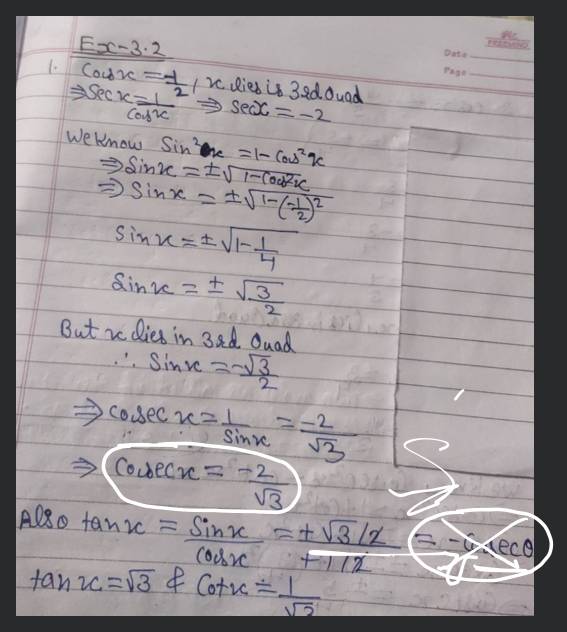 Ex-3.2
Date
Page
1. Cosx = -1/2, x lies is 3rd Quad
⇒ Sec x = 1/Cosx ⇒ secx = -2
We Know Sin²x = 1 - Cos²x
⇒ Sinx = ±√1-Cos²x
⇒ Sinx = ±√1-(-1/2)²
Sinx = ±√1-1/4
Sinx = ± √3/2
But x lies in 3rd Quad
∴ Sinx = -√3/2
⇒ Cosec x = 1/Sinx = -2/√3
⇒ Cosecx = -2/√3
Also tanx = Sinx/Cosx = +√3/2/+1/2 =
tanx = √3 & Cotx = 1/√3